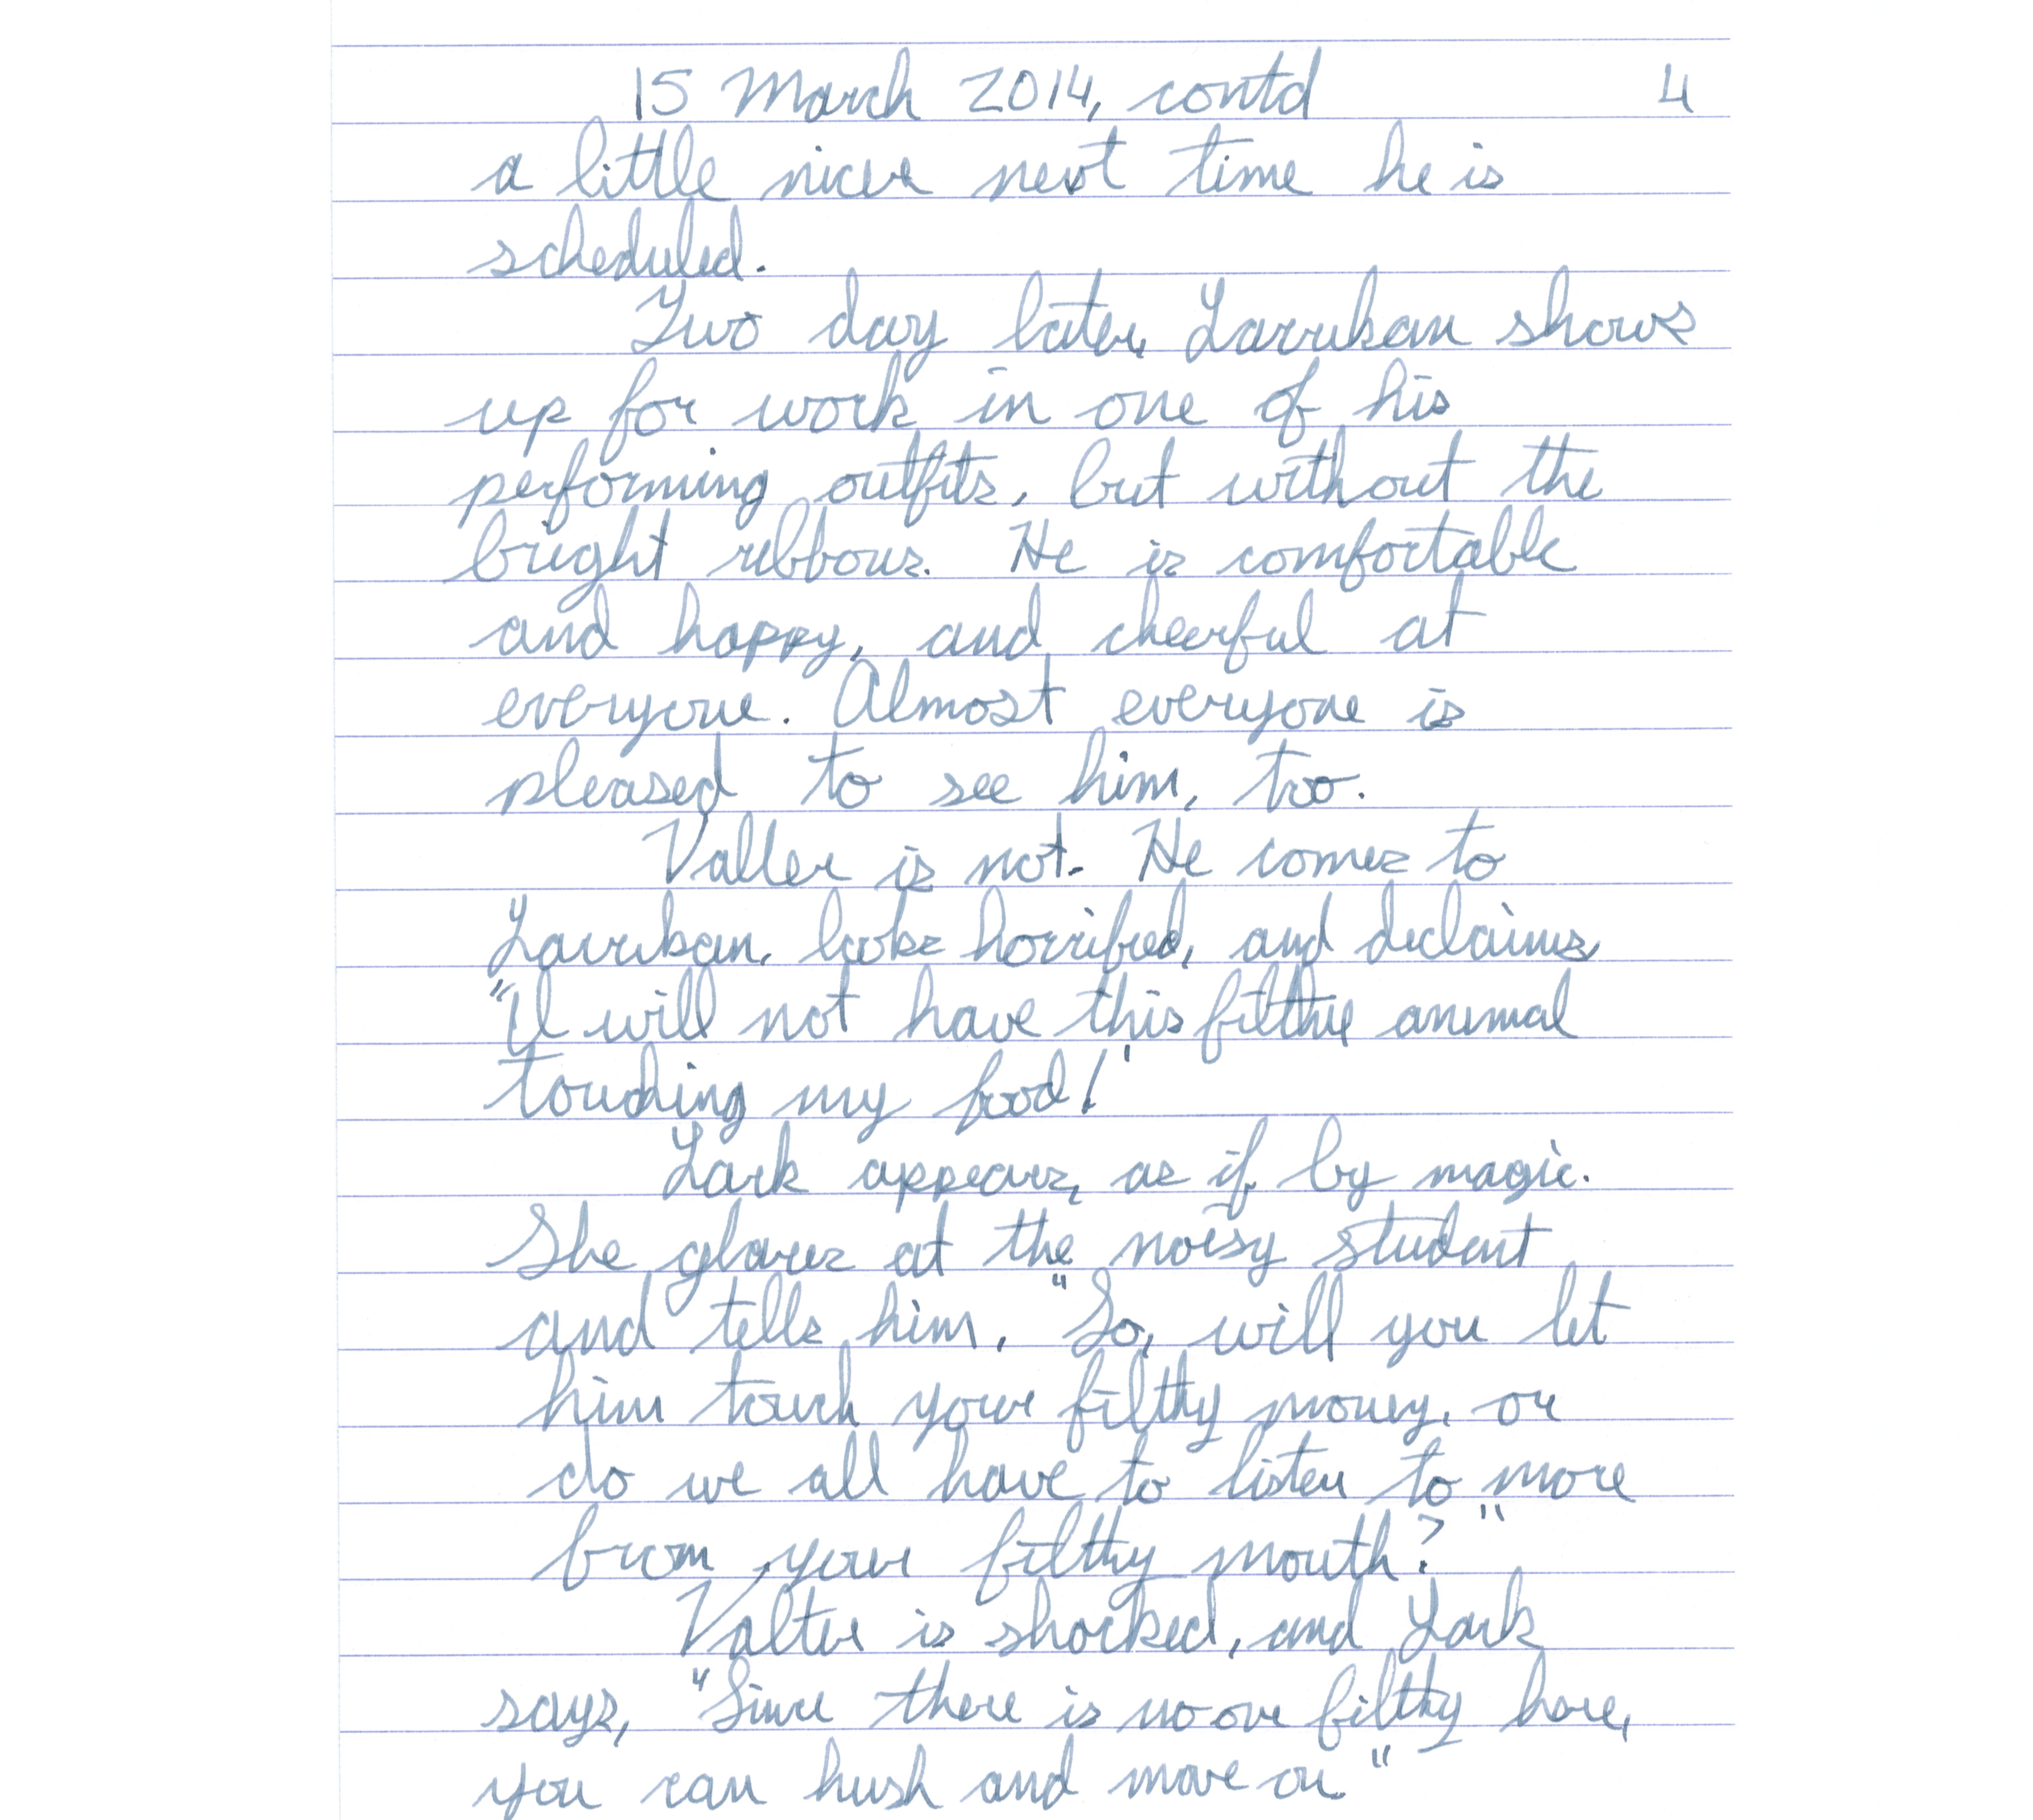 15 March 2014, contd 4
a little nicer next time he is
scheduled.
Two day later, Larrikan shows
up for work in one of his
performing outfits, but without the
bright ribbons. He is comfortable
and happy, and cheerful at
everyone. Almost everyone is
pleased to see him, too.
Valter is not. He comes to
Larrikan, looks horrified, and declaims,
"I will not have this filthy animal
touching my food!"
Lark appears, as if by magic.
She glares at the noisy student
and tells him, "So, will you let
him touch your filthy money, or
do we all have to listen to more
from your filthy mouth?"
Valter is shocked, and Lark
says, "Since there is no one filthy here,
you can hush and move on"